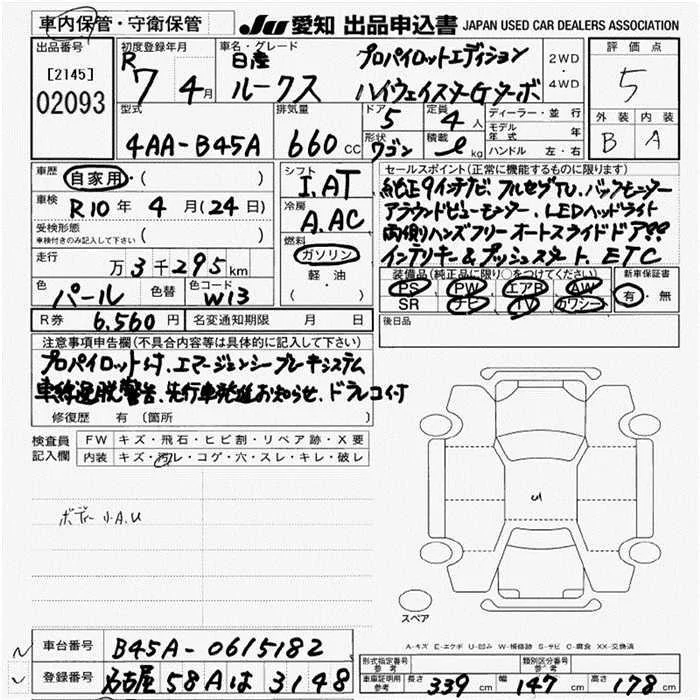 車内保管・守衛保管
JU 愛知 出品申込書 JAPAN USED CAR DEALERS ASSOCIATION
出品番号
[2145]
02093
初度登録年月
R7 4月
車名・グレード
日産 プロパイロットエディション
ルークス ハイウェイスターGターボ
2WD・4WD
評価点
5
外装 内装
B A
型式
4AA-B45A
排気量
660 cc
ドア
5
形状
ワゴン
定員
4人
積載
kg
ディーラー・並行
モデル年式 年
ハンドル 左・右
車歴
自家用・( )
車検
R10年 4月(24日)
受検形態
車検付きのみ記入して下さい ( )
走行
万3千295km
色
パール
色替
色コード
W13
シフト
I.AT
冷房
A.AC
燃料
ガソリン
軽油
( )
セールスポイント(正常に機能するものに限ります)
純正9インチナビ フルセグTV、バックモニター
アラウンドビューモニター、LEDヘッドライト
両側ハンズフリーオートスライドドア!!
インテリキー&プッシュスタート、ETC
装備品(純正品に限り○をつけてください)
PS PW エアB AW
SR ナビ TV カワシート
新車保証書
有・無
R券 6,560円
名変通知期限 月 日
後日品
注意事項申告欄(不具合内容等は具体的に記入して下さい)
プロパイロット付、エマージェンシーブレーキシステム
車線逸脱警告、先行車発進お知らせ、ドラレコ付
修復歴 有 〔箇所 〕
検査員記入欄
FW キズ・飛石・ヒビ割・リペア跡・X要
内装 キズ・汚レ・コゲ・穴・スレ・キレ・破レ
ボディー小A.U
スペア
A-キズ E-エクボ U-凹み W-補修跡 S-サビ C-腐食 XX-交換済
車台番号 B45A-0615182
登録番号 名古屋 58A は 3148
形式指定番号 参考
類別区分番号 参考
車庫証明用 参考 長さ 339 cm 幅 147 cm 高さ 178 cm